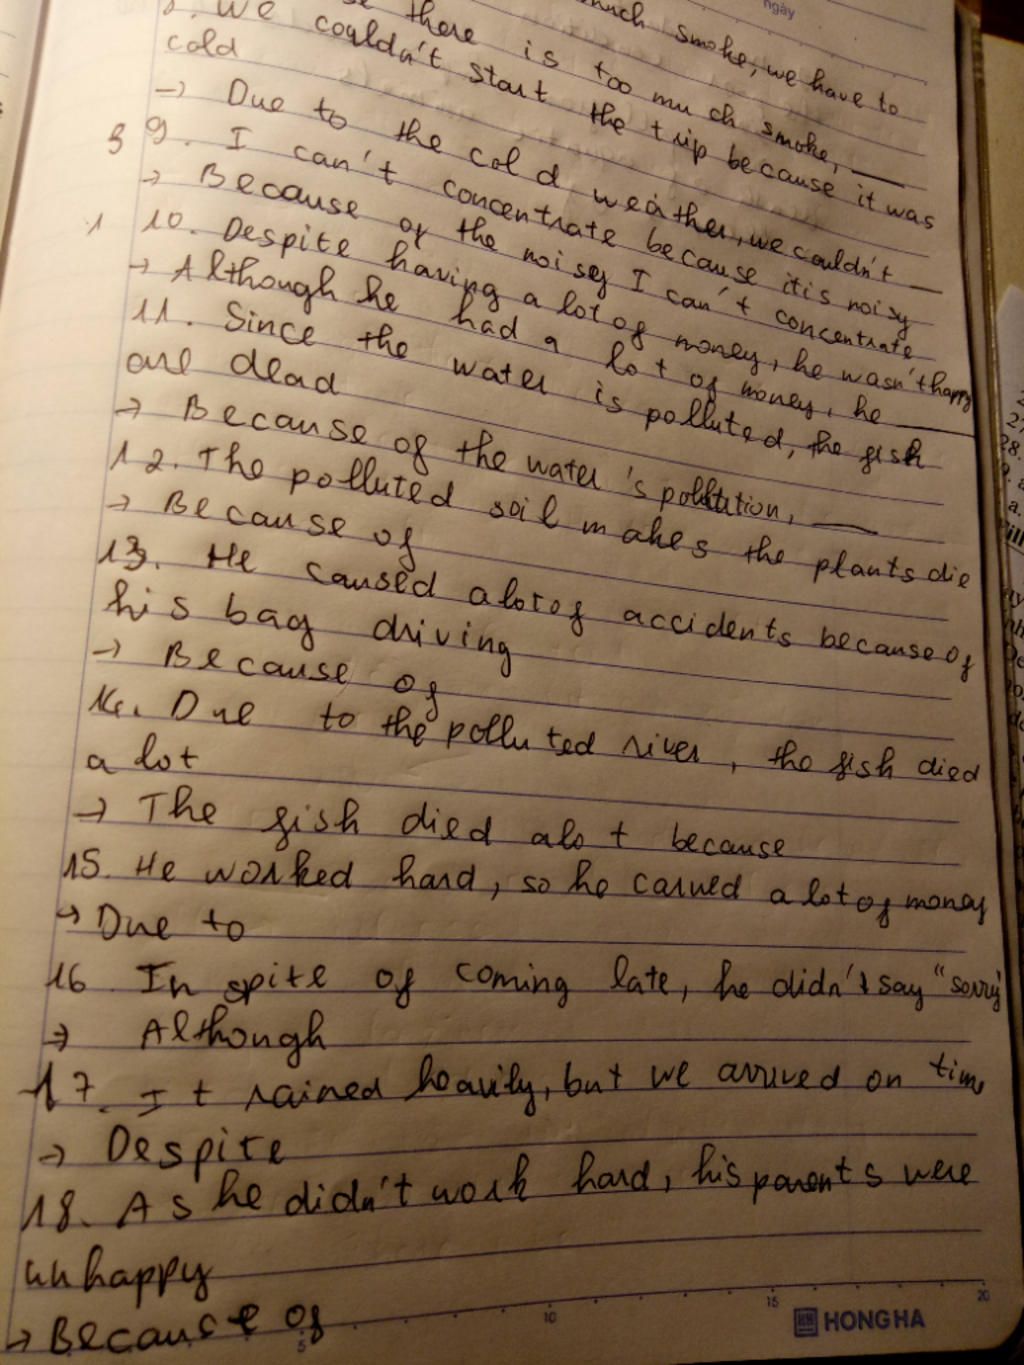 much smoke, we have to
there is too much smoke, ___
8. We couldn't start the trip because it was
cold
→ Due to the cold weather, we couldn't ___
9. I can't concentrate because it is noisy
→ Because of the noisy I can't concentrate
10. Despite having a lot of money, he wasn't happy
→ Although he had a lot of money, he ___
11. Since the water is polluted, the fish
are dead
→ Because of the water's pollution, ___
12. The polluted soil makes the plants die
→ Because of
13. He caused a lot of accidents because of
his bag driving
→ Because of
14. Due to the polluted river, the fish died
a lot
→ The fish died a lot because
15. He worked hard, so he earned a lot of money
→ Due to
16 In spite of coming late, he didn't say "sorry"
→ Although
17. It rained heavily, but we arrived on time
→ Despite
18. As he didn't work hard, his parents were
unhappy
→ Because of
ngày
5 10 15 20
HONG HA